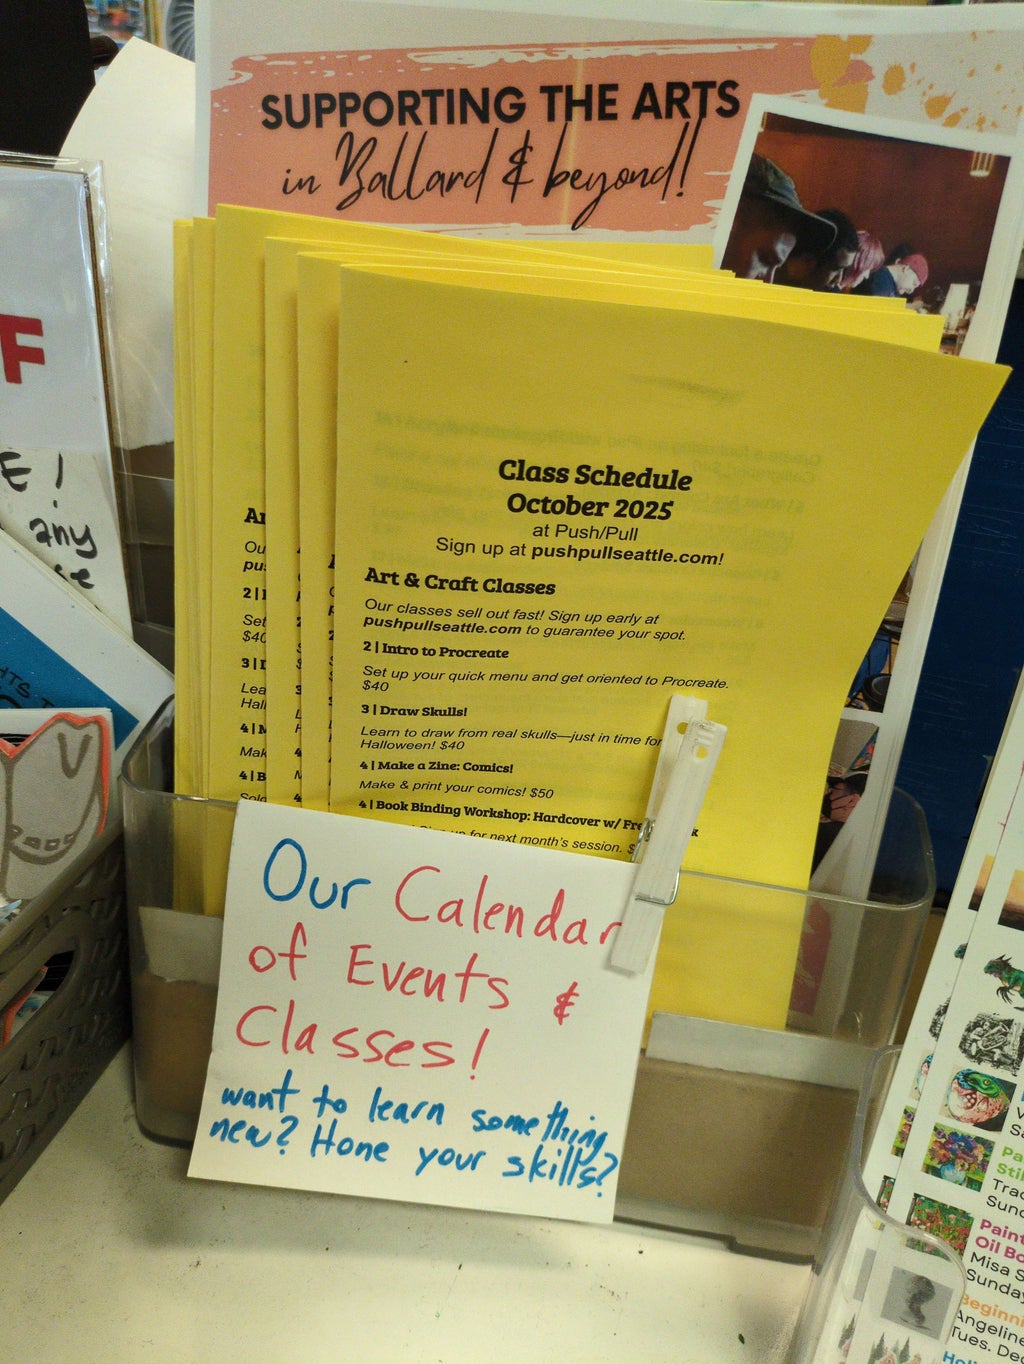 SUPPORTING THE ARTS
in Ballard & beyond!
F
E!
any
Class Schedule
October 2025
at Push/Pull
Sign up at pushpullseattle.com!
Art & Craft Classes
Our classes sell out fast! Sign up early at
pushpullseattle.com to guarantee your spot.
2 | Intro to Procreate
Set up your quick menu and get oriented to Procreate.
$40
3 | Draw Skulls!
Learn to draw from real skulls—just in time for
Halloween! $40
4 | Make a Zine: Comics!
Make & print your comics! $50
4 | Book Binding Workshop: Hardcover w/
for next month's session.
Our Calendar
of Events &
Classes!
want to learn something
new? Hone your skills?
Paint
Oil
Misa
Sunday
Angeline
Tues.